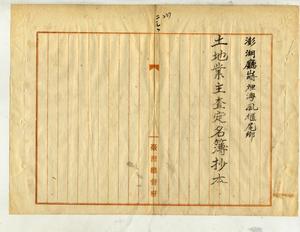 澎湖廳嵵裡澳風櫃尾鄉
土地業主查定名簿抄本
臺灣總督府